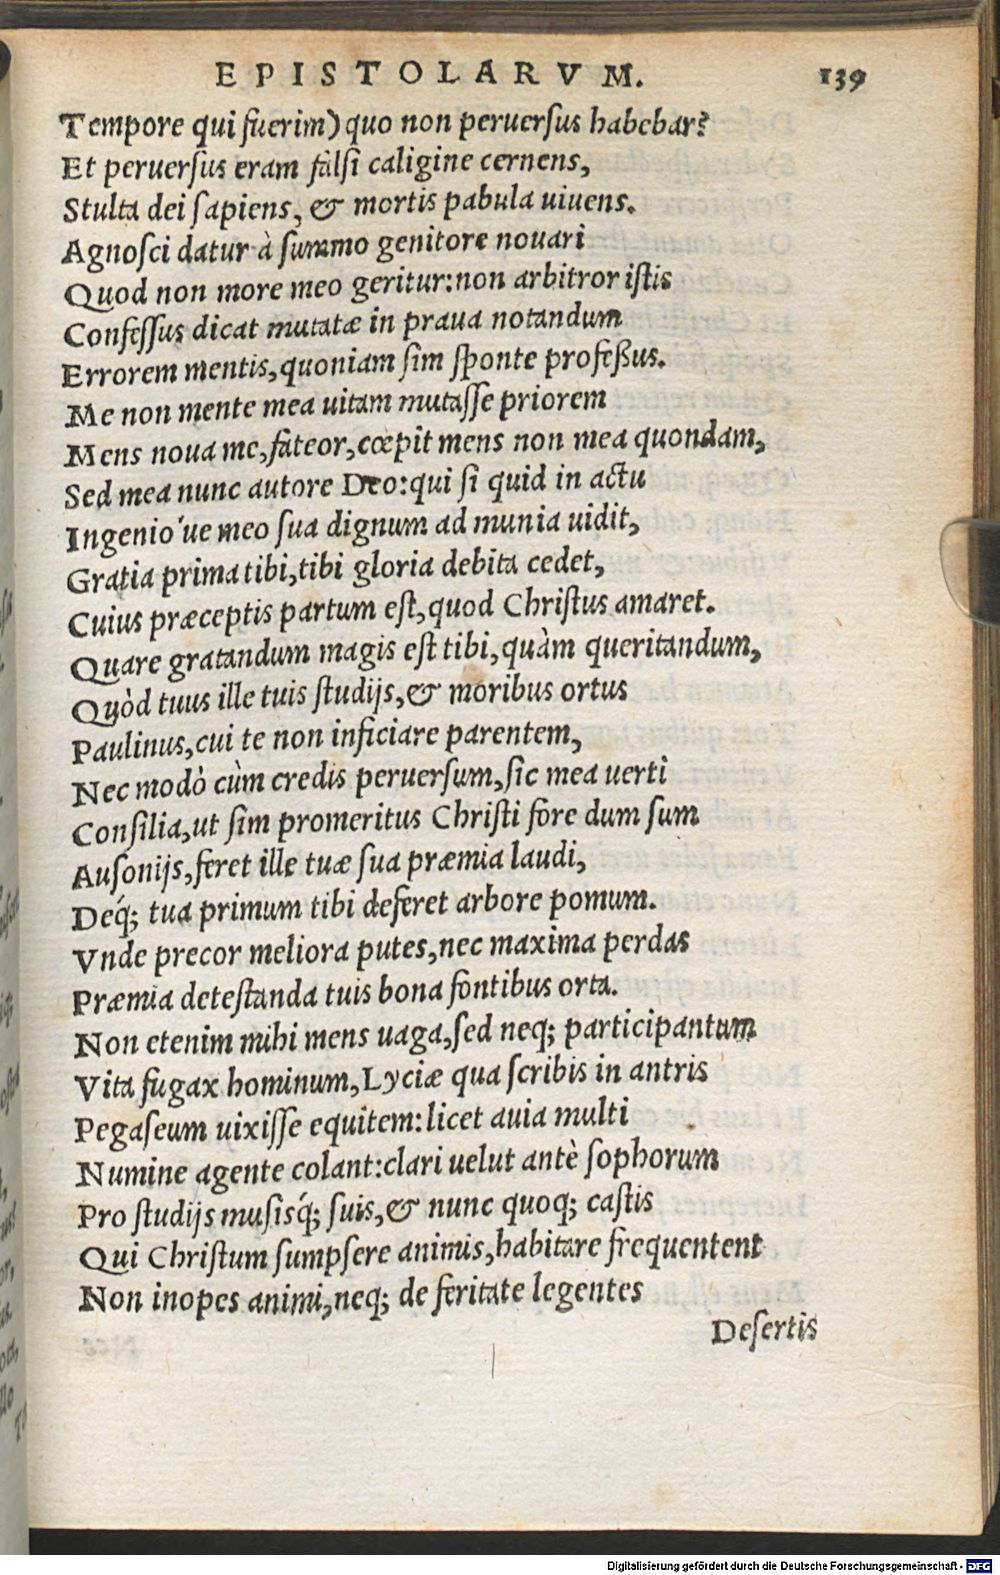 EPISTOLARVM. 139
Tempore qui fuerim) quo non peruersus habebar?
Et peruersus eram falsi caligine cernens,
Stulta dei sapiens, & mortis pabula uiuens.
Agnosci datur à summo genitore nouari
Quod non more meo geritur: non arbitror istis
Confessus dicat mutatæ in praua notandum
Errorem mentis, quoniam sim sponte profeßus.
Me non mente mea uitam mutasse priorem
Mens noua me, fateor, cœpit mens non mea quondam,
Sed mea nunc autore Deo: qui si quid in actu
Ingenio ́ue meo sua dignum ad munia uidit,
Gratia prima tibi, tibi gloria debita cedet,
Cuius præceptis partum est, quod Christus amaret.
Quare gratandum magis est tibi, quàm queritandum,
Quòd tuus ille tuis studijs, & moribus ortus
Paulinus, cui te non inficiare parentem,
Nec modò cùm credis peruersum, sic mea uerti
Consilia, ut sim promeritus Christi fore dum sum
Ausonijs, feret ille tuæ sua præmia laudi,
Deq́; tua primum tibi deferet arbore pomum.
Vnde precor meliora putes, nec maxima perdas
Præmia detestanda tuis bona fontibus orta.
Non etenim mihi mens uaga, sed neq; participantum
Vita fugax hominum, Lyciæ qua scribis in antris
Pegaseum uixisse equitem: licet auia multi
Numine agente colant: clari uelut antè sophorum
Pro studijs musisq́; suis, & nunc quoq; castis
Qui Christum sumpsere animis, habitare frequentent
Non inopes animi, neq; de feritate legentes
Desertis
Digitalisierung gefördert durch die Deutsche Forschungsgemeinschaft - DFG